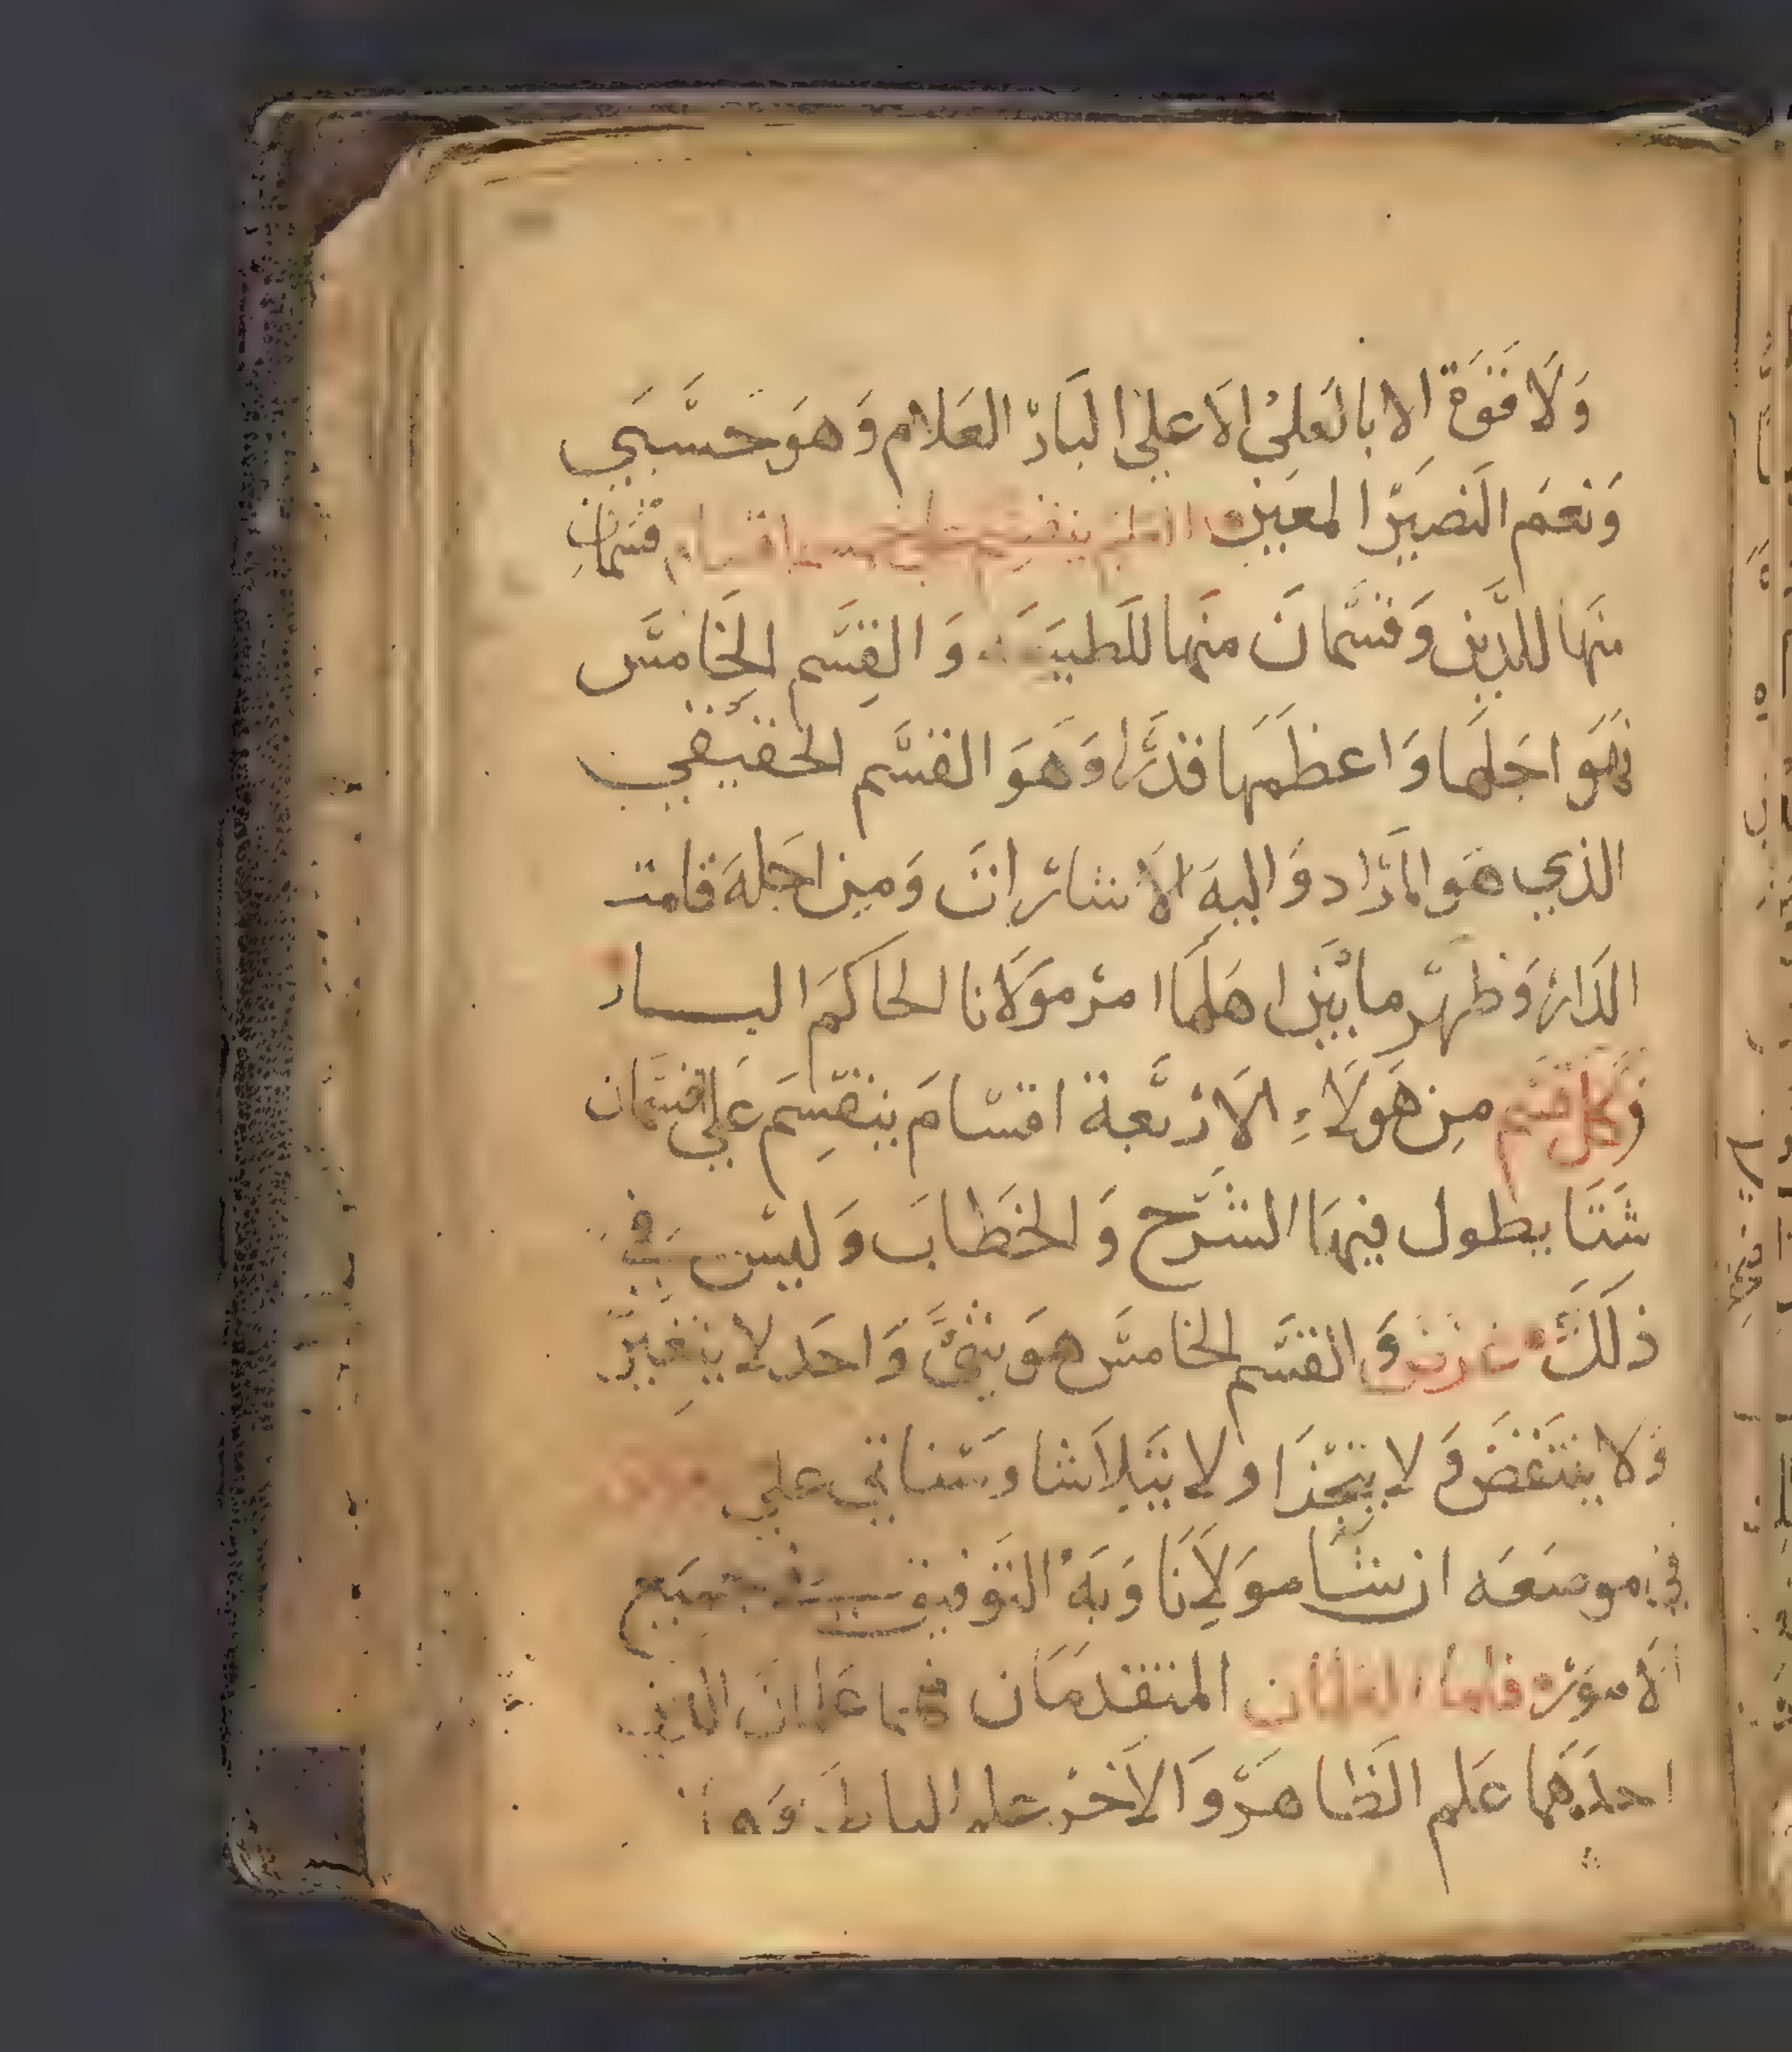 وَلَا قَوَة الا بالعَلي الاعلي البَارّ العَلام وَهوَ حسَّبَي
وَنعَمَ النَصيَرّ المعَين العلم ينقسم علي خمسة اقسام قسَمان
منهَا للدّين وَقسَّمانَ منهَا للَطبيَعَة وَالقِسَّم الخَامسَّ
فهَو اجَلهَا وَاعظمَها قدَرًّا وَهَوَ القسَّم الحَقيقي
الذي هَو المرَّاد وَاليهَ الاشارات وَمِن اجَلهَ قامت
الدَار وَظهَرّ مابيَن اهَلهَا امرّ مَوَلانا الحاكَمَ البار
وَكل قسَم مِن هَولَاءِ الارّبَعة اقسَامَ ينقسِمَ عَلي اقسَّمان
شَتَا يطول فيهَا الشَرّح وَالخَطابَ وَليسَ في
ذلَكَ وَالقسَّم الخامسَّ هوَ شيَّ وَاحَد لا يتغيَرّ
وَلا ينتَقَض وَلا يتجَزَا ولا يَتلاشا وَسَّناتي علي
في موضعَه ان شَا موَلانَا وَبَهَ التَوفيق في جميَع
الامَوَر فاما العلمان المتقدمَان فهما عَلمان اللذين
احدَهَما عَلم الظَاهَرّ وَالاخَر علم الباطن